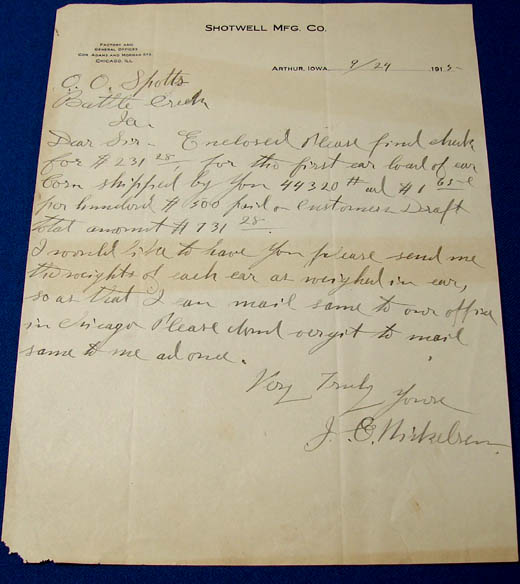 SHOTWELL MFG. CO.
FACTORY AND
GENERAL OFFICES
COR. ADAMS AND MORGAN STS.
CHICAGO, ILL
ARTHUR, IOWA 9/24 1915
O. O. Spotts
Battle Creek
Ia.
Dear Sir - Enclosed Please find check
for $231 28, for the first car load of ear
Corn shipped by you 44320 # at $1 65 c
per hundred $1500 paid on Customers Draft
total amount $731 28.
I would like to have you please send me
the weights of each car as weighed in car,
so as that I can mail same to our office
in Chicago Please dond vergit to mail
same to me at once.
Very Truly Yours
J. C. Nickelsen.